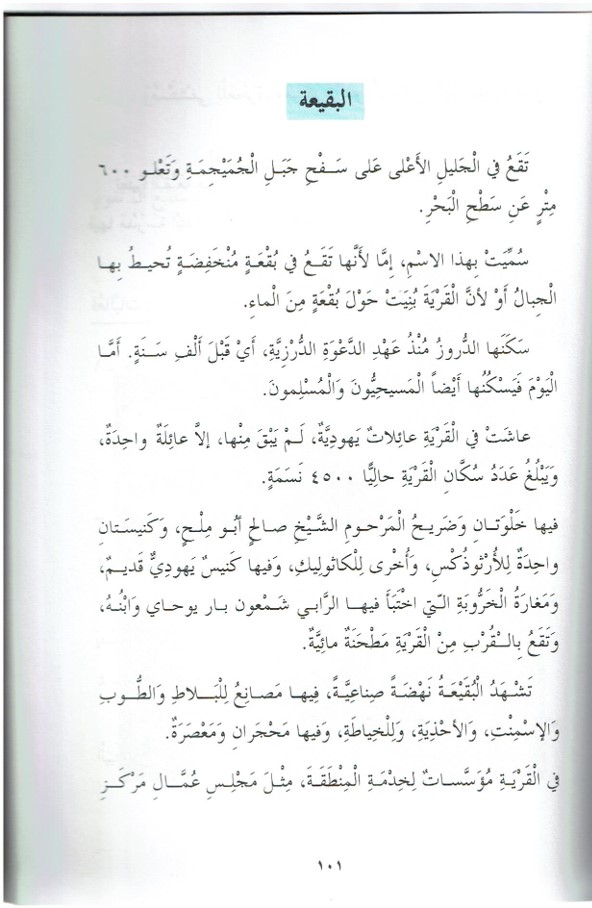 البقيعة
تَقَعُ في الْجَليلِ الأَعْلى عَلى سَفْحِ جَبَلِ الْجُمَيْجِمَةِ وَتَعْلو ٦٠٠
مِتْرٍ عَنِ سَطْحِ الْبَحْرِ.
سُمِّيَتْ بِهذا الاسْمِ، إمَّا لأَنَّها تَقَعُ في بُقْعَةٍ مُنْخَفِضَةٍ تُحيطُ بِها
الْجِبالُ أَوْ لأنَّ الْقَرْيَةَ بُنِيَتْ حَوْلَ بُقْعَةٍ مِنَ الْماءِ.
سَكَنَها الدُّروزُ مُنْذُ عَهْدِ الدَّعْوَةِ الدُّرْزِيَّةِ، أَيْ قَبْلَ أَلْفِ سَنَةٍ. أَمَّا
الْيَوْمَ فَيَسْكُنُها أَيْضاً الْمَسيحِيُّونَ وَالْمُسْلِمونَ.
عاشَتْ في الْقَرْيَةِ عائِلاتٌ يَهودِيَّةٌ، لَمْ يَبْقَ مِنْها، إلاَّ عائِلَةٌ واحِدَةٌ،
وَيَبْلُغُ عَدَدُ سُكَّانِ الْقَرْيَةِ حالِيًّا ٤٥٠٠ نَسَمَةٍ.
فيها خَلْوَتانِ وَضَريحُ الْمَرْحومِ الشَّيْخِ صالِحٍ أَبُو مِلْحٍ، وَكَنيسَتانِ
واحِدَةٌ لِلأُرْثوذُكْسِ، وَأُخْرى لِلْكاثولِيكِ، وَفيها كَنيسٌ يَهودِيٌّ قَديمٌ،
وَمَغارَةُ الْخَرُّوبَةِ الّتي اخْتَبَأَ فيها الرَّابي شَمْعون بار يوحاي وَابْنُهُ،
وَتَقَعُ بِالْقُرْبِ مِنْ الْقَرْيَةِ مَطْحَنَةٌ مائِيَّةٌ.
تَشْهَدُ الْبُقَيْعَةُ نَهْضَةً صِناعِيَّةً، فيها مَصانِعُ لِلْبَلاطِ وَالطُّوبِ
وَالإسْمِنْتِ، وَالأحْذِيَةِ، وَلِلْخِياطَةِ، وَفيها مَحْجَرانِ وَمَعْصَرَةٌ.
في الْقَرْيَةِ مُؤَسَّساتٌ لِخِدْمَةِ الْمِنْطَقَةَ، مِثْلَ مَجْلِسِ عُمَّالِ مَرْكَزِ
١٠١